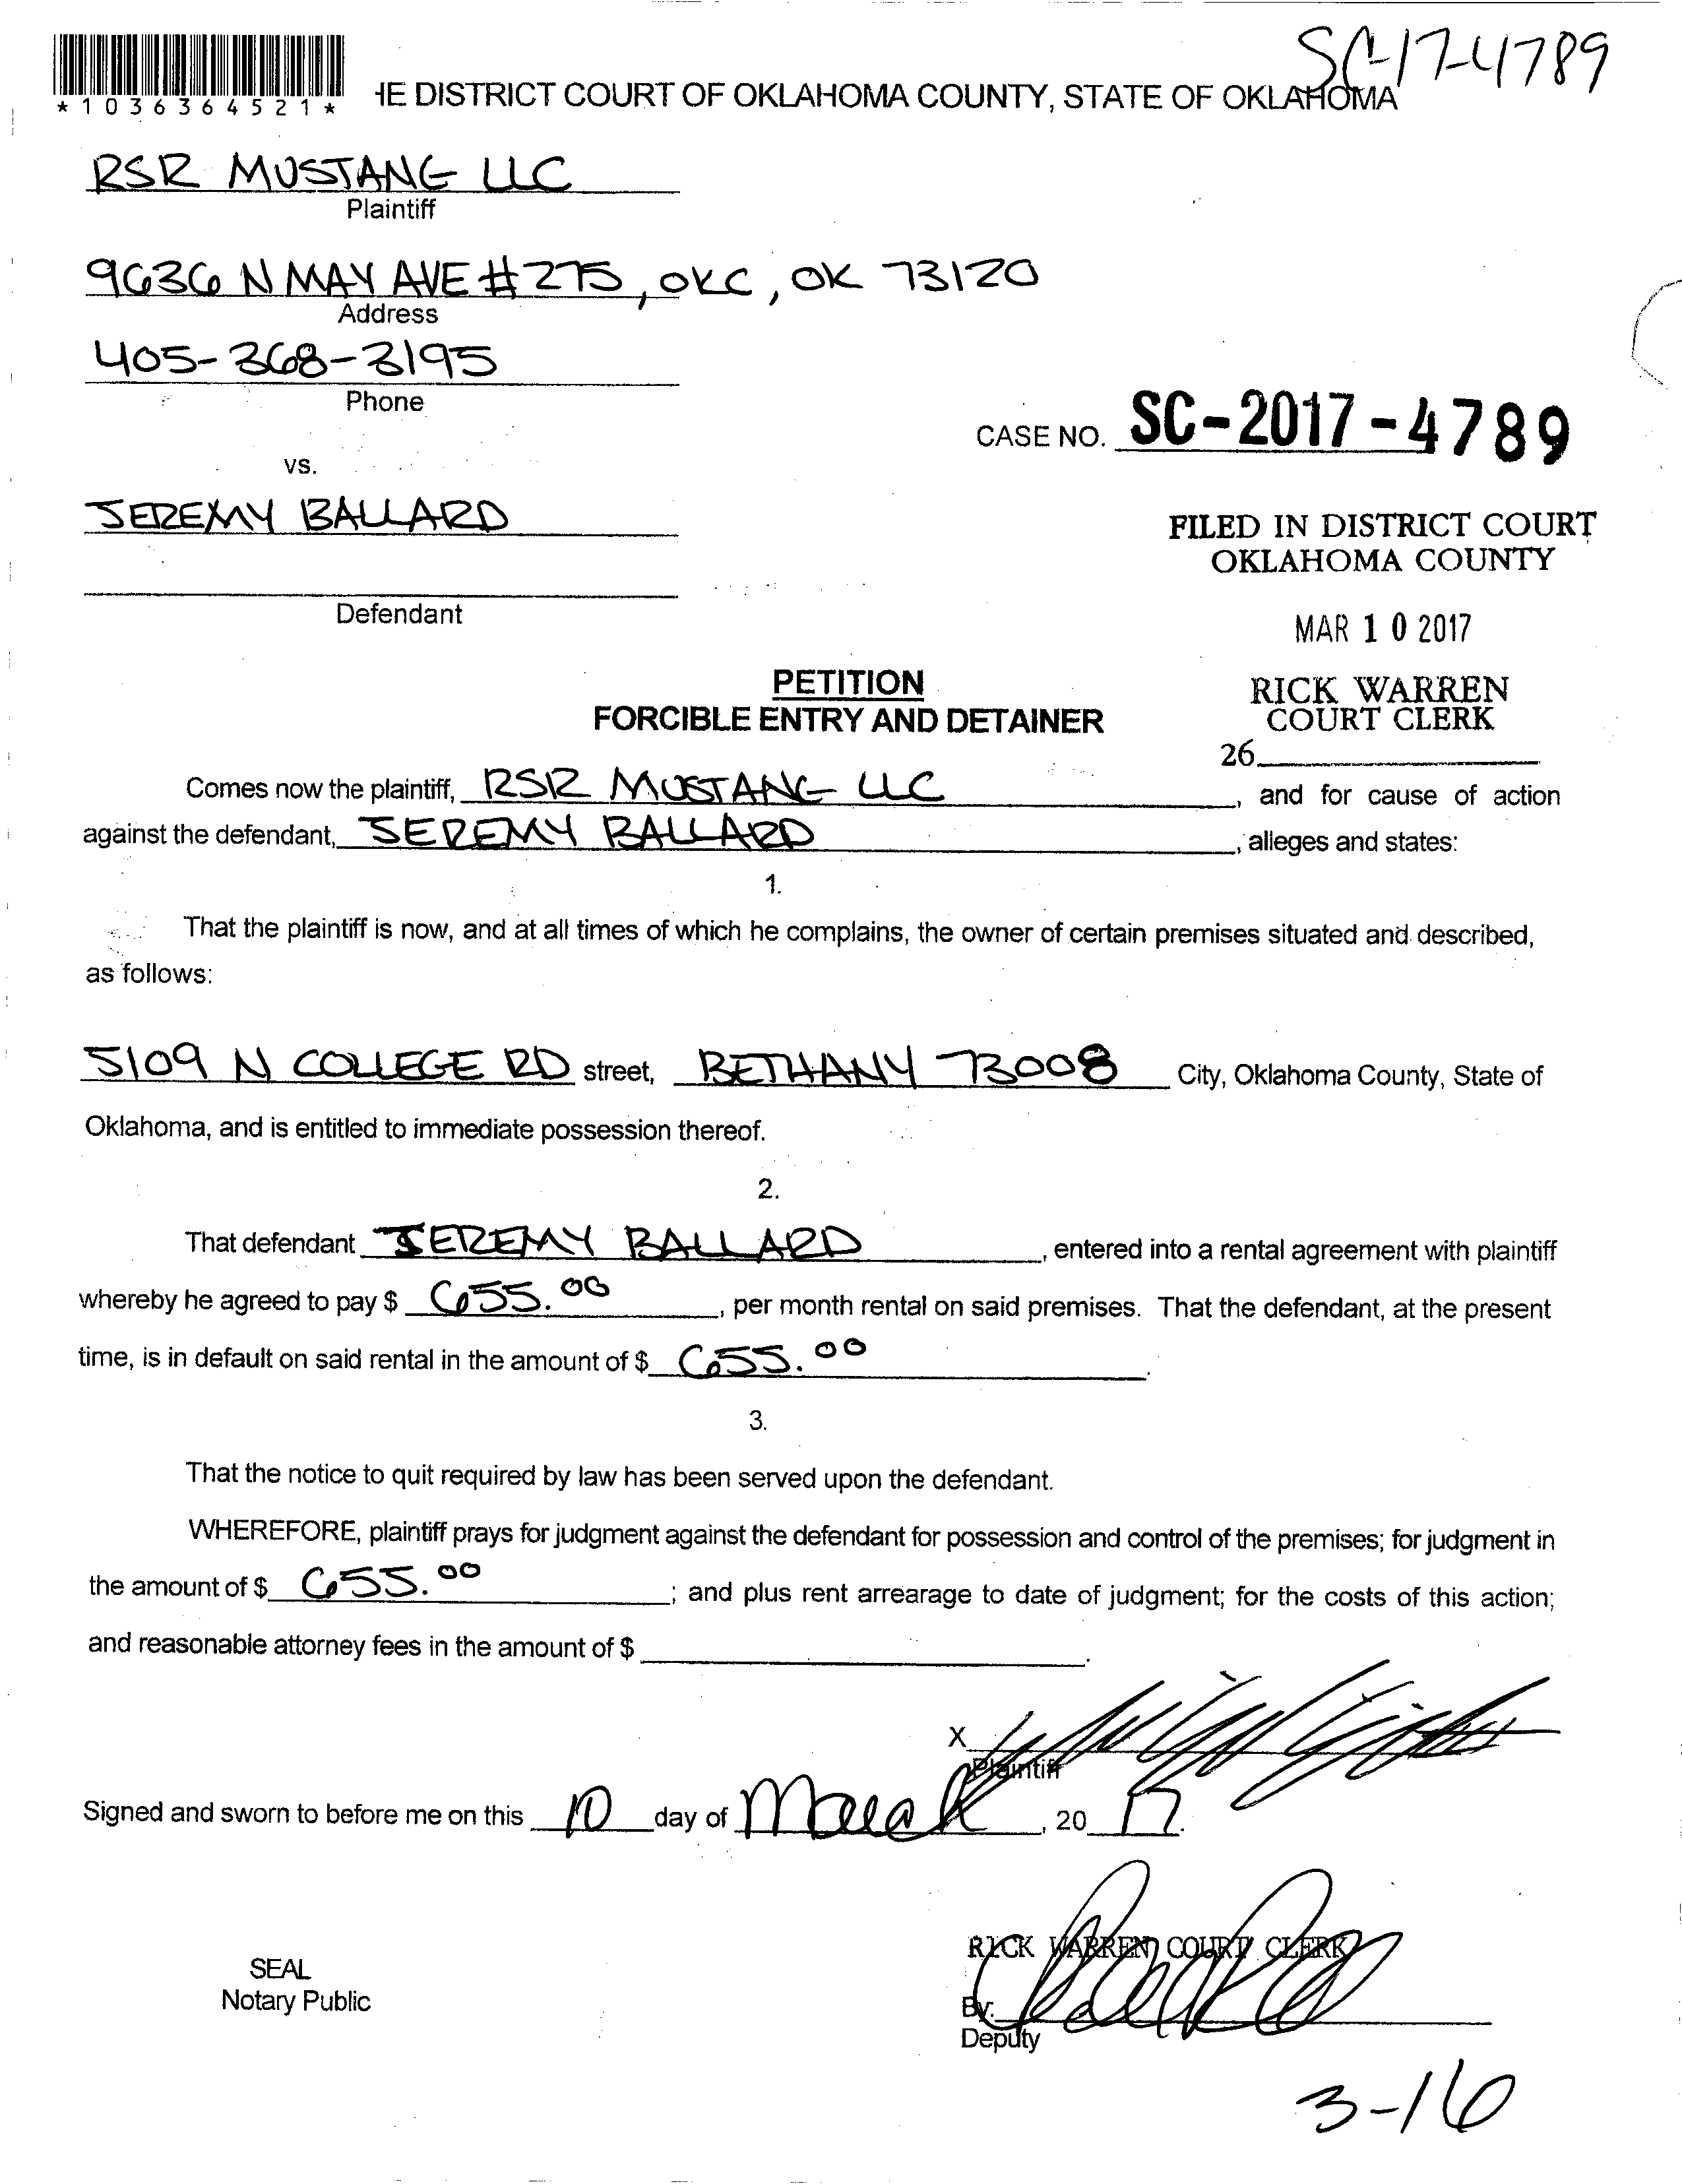 SC-17-4789
*1036364521*
HE DISTRICT COURT OF OKLAHOMA COUNTY, STATE OF OKLAHOMA
RSR MUSTANG LLC
Plaintiff
9636 N MAY AVE #275, OKC, OK 73120
Address
405-368-3195
Phone
CASE NO. SC-2017-4789
vs.
JEREMY BALLARD
FILED IN DISTRICT COURT
OKLAHOMA COUNTY
Defendant
MAR 10 2017
PETITION
FORCIBLE ENTRY AND DETAINER
RICK WARREN
COURT CLERK
26
Comes now the plaintiff, RSR MUSTANG LLC, and for cause of action
against the defendant, JEREMY BALLARD, alleges and states:
1.
That the plaintiff is now, and at all times of which he complains, the owner of certain premises situated and described,
as follows:
5109 N COLLEGE RD street, BETHANY 73008 City, Oklahoma County, State of
Oklahoma, and is entitled to immediate possession thereof.
2.
That defendant JEREMY BALLARD, entered into a rental agreement with plaintiff
whereby he agreed to pay $ 655.00, per month rental on said premises. That the defendant, at the present
time, is in default on said rental in the amount of $ 655.00.
3.
That the notice to quit required by law has been served upon the defendant.
WHEREFORE, plaintiff prays for judgment against the defendant for possession and control of the premises; for judgment in
the amount of $ 655.00; and plus rent arrearage to date of judgment; for the costs of this action;
and reasonable attorney fees in the amount of $ .
X
Plaintiff
Signed and sworn to before me on this 10 day of March, 2017.
RICK WARREN COURT CLERK
SEAL
Notary Public
By:
Deputy
3-16